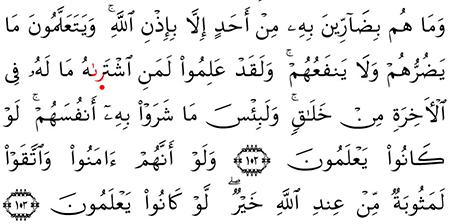 وَمَا هُم بِضَآرِّينَ بِهِۦ مِنۡ أَحَدٍ إِلَّا بِإِذۡنِ ٱللَّهِۚ وَيَتَعَلَّمُونَ مَا
يَضُرُّهُمۡ وَلَا يَنفَعُهُمۡۚ وَلَقَدۡ عَلِمُواْ لَمَنِ ٱشۡتَرٜىٰهُ مَا لَهُۥ فِي
ٱلۡأٓخِرَةِ مِنۡ خَلَٰقٖۚ وَلَبِئۡسَ مَا شَرَوۡاْ بِهِۦٓ أَنفُسَهُمۡۚ لَوۡ
كَانُواْ يَعۡلَمُونَ ١٠٢ وَلَوۡ أَنَّهُمۡ ءَامَنُواْ وَٱتَّقَوۡاْ
لَمَثُوبَةٞ مِّنۡ عِندِ ٱللَّهِ خَيۡرٞۚ لَّوۡ كَانُواْ يَعۡلَمُونَ ١٠٣